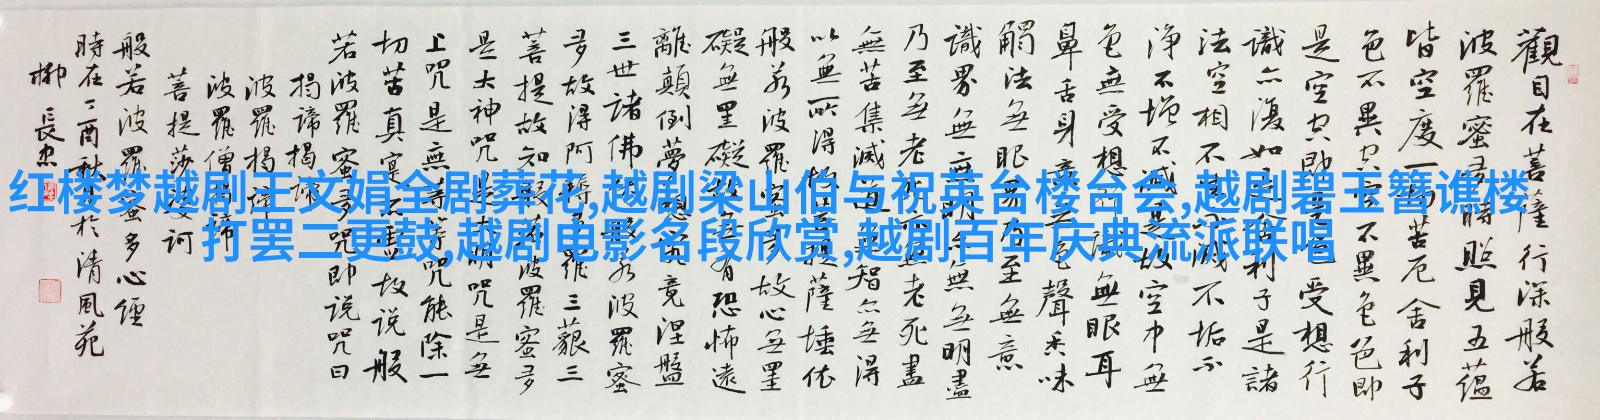 红楼梦越剧王文娟全剧葬花,越剧梁山伯与祝英台楼台会,越剧碧玉簪谯楼
打罢二更鼓,越剧电影名段欣赏,越剧百年庆典流派联唱
觀自在菩薩行深般若
波羅蜜多時照見五蘊
皆空度一切苦厄舍利子
色不異空空不異色色即
是空空即是色受想行
識亦復如是舍利子是諸
法空相不生不滅不垢不
淨不增不減是故空中無
色無受想行識無眼耳
鼻舌身意無色聲香味
觸法無眼界乃至無意
識界無無明亦無無明盡
乃至無老死亦無老死盡
無苦集滅道無智亦無得
以無所得故菩提薩埵依
般若波羅蜜多故心無罣
礙無罣礙故無有恐怖遠
離顛倒夢想究竟涅盤
三世諸佛依般若波羅蜜
多故得阿耨多羅三藐三
菩提故知般若波羅蜜多
是大神咒是大明咒是無
上咒是無等等咒能除一
切苦真實不虛故說般
若波羅蜜多咒即說咒曰
揭諦揭諦
波羅揭諦
波羅僧揭諦
菩提薩婆訶
般若波羅蜜多心經
時在丁酉秋於清風苑
柳長忠